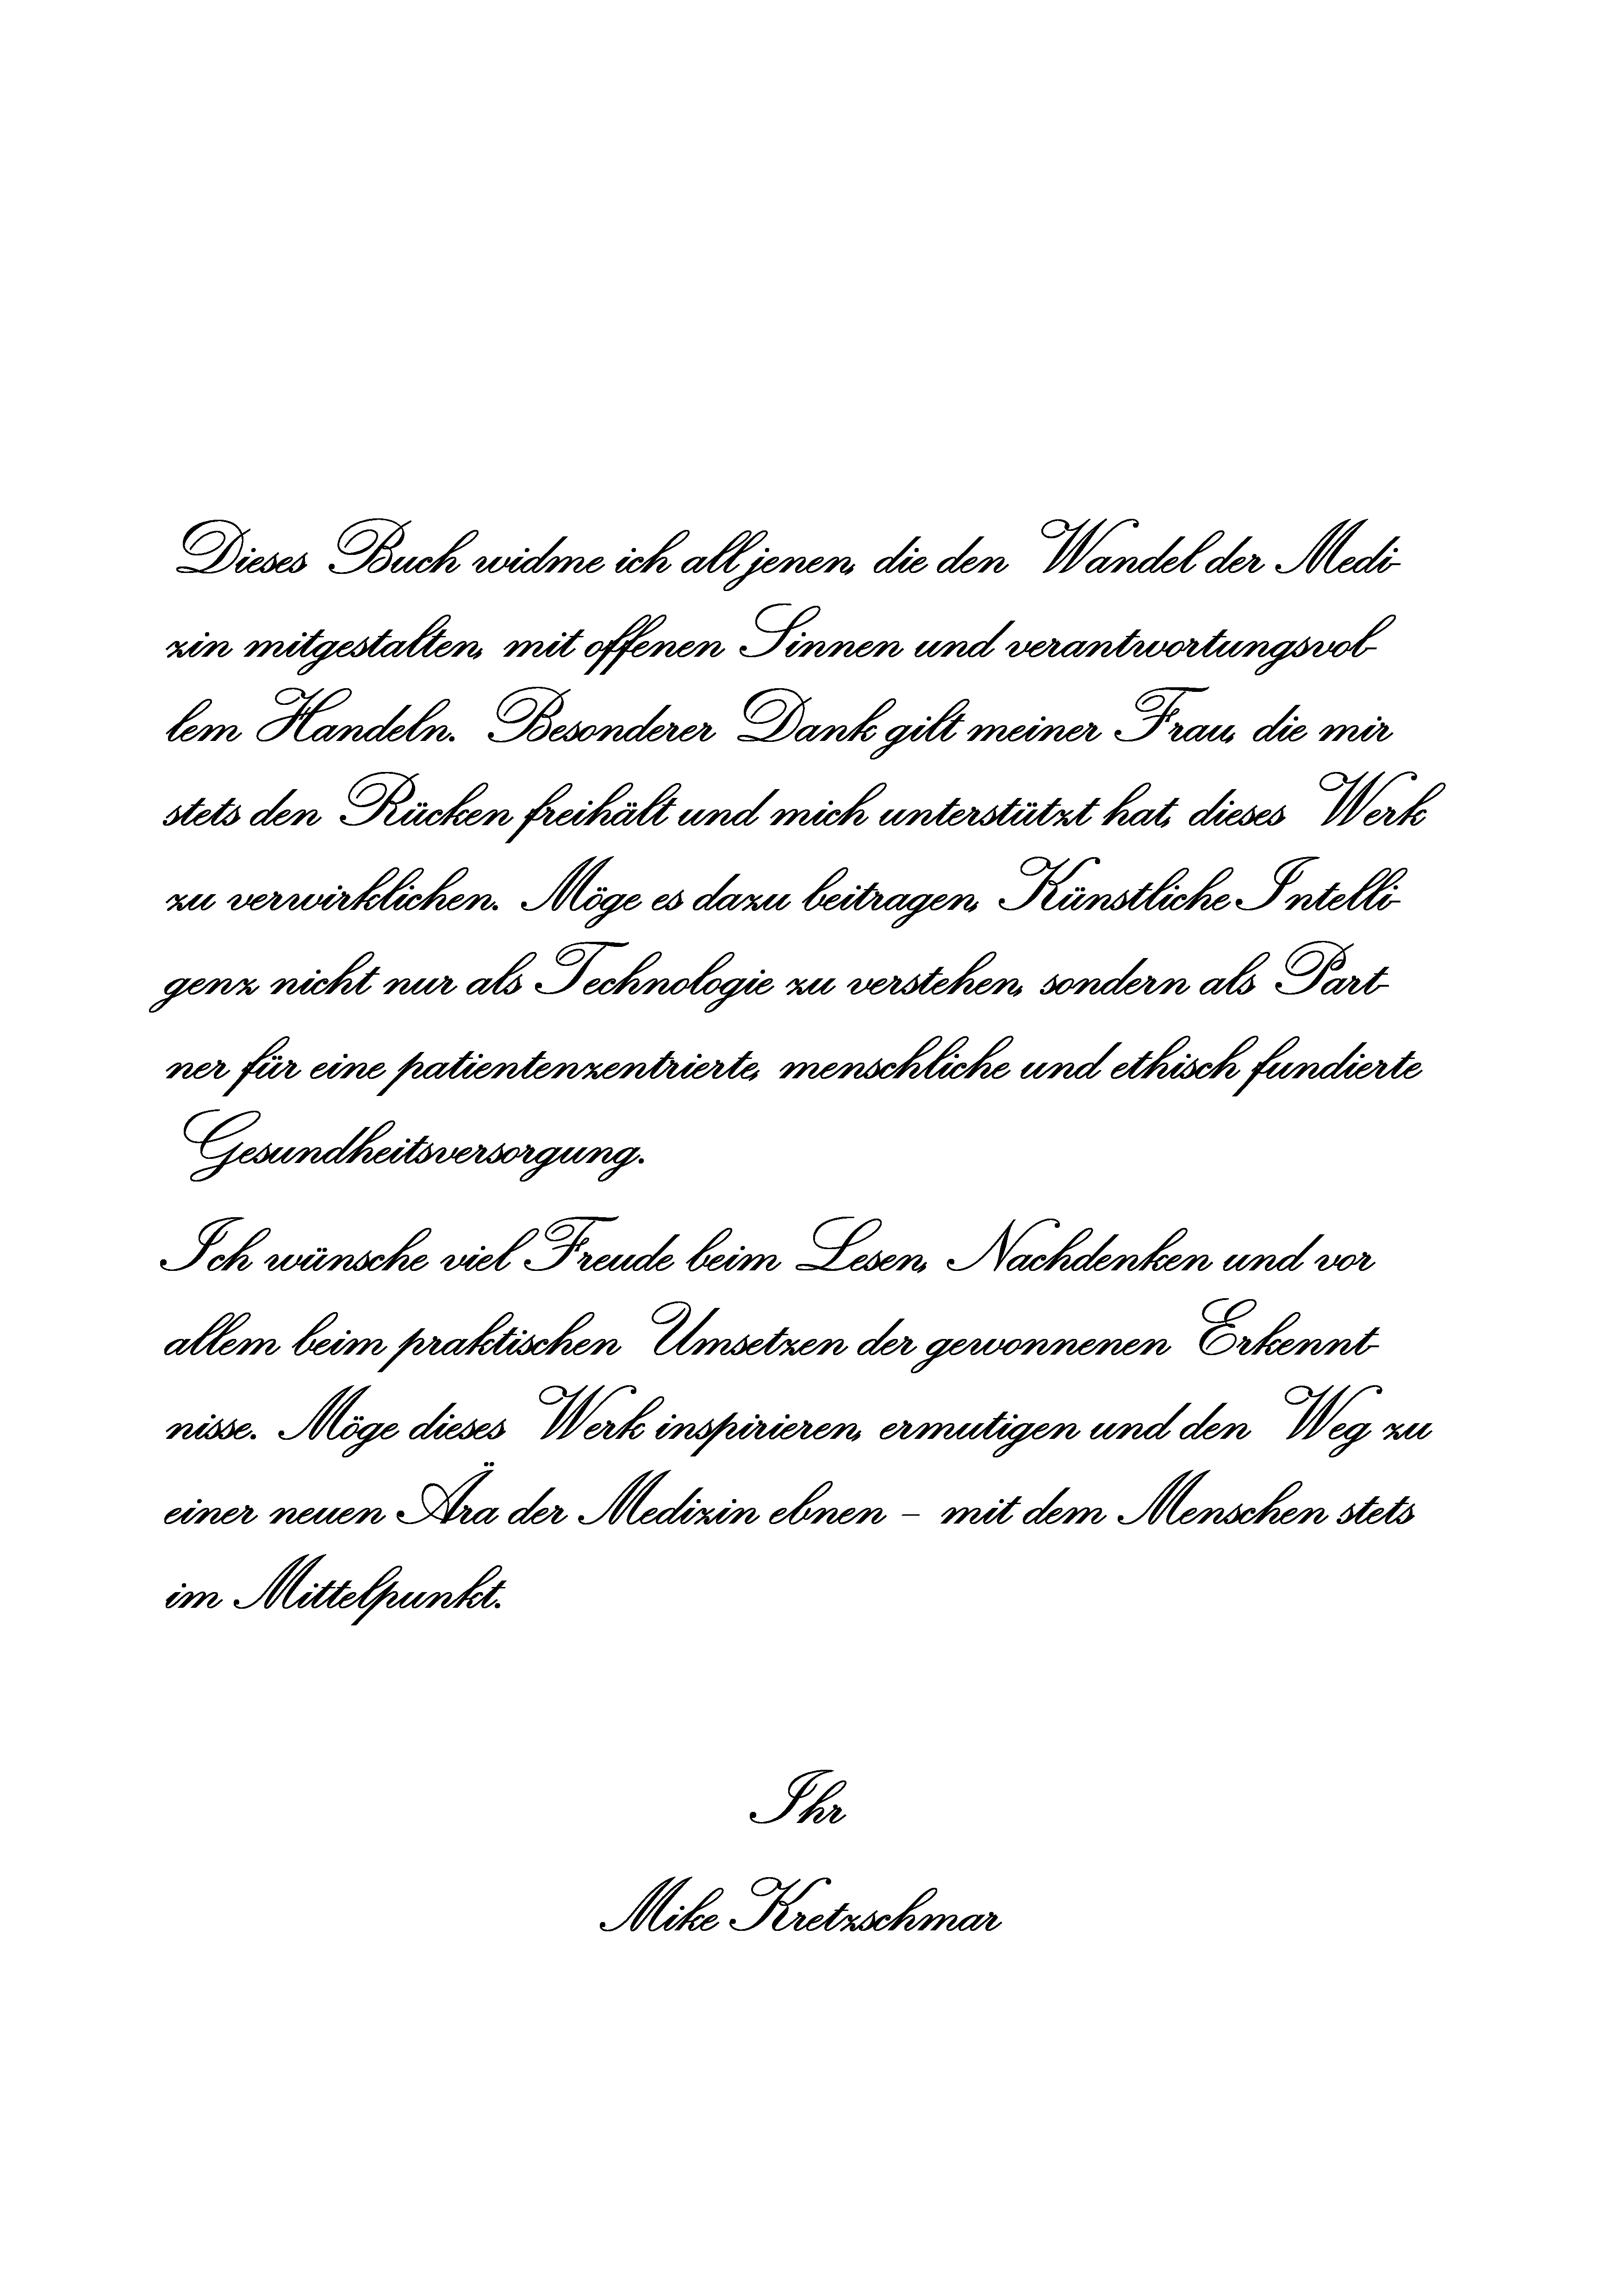 Dieses Buch widme ich all jenen, die den Wandel der Medi-
zin mitgestalten, mit offenen Sinnen und verantwortungsvol-
lem Handeln. Besonderer Dank gilt meiner Frau, die mir
stets den Rücken freihält und mich unterstützt hat, dieses Werk
zu verwirklichen. Möge es dazu beitragen, Künstliche Intelli-
genz nicht nur als Technologie zu verstehen, sondern als Part-
ner für eine patientenzentrierte, menschliche und ethisch fundierte
Gesundheitsversorgung.
Ich wünsche viel Freude beim Lesen, Nachdenken und vor
allem beim praktischen Umsetzen der gewonnenen Erkennt-
nisse. Möge dieses Werk inspirieren, ermutigen und den Weg zu
einer neuen Ära der Medizin ebnen – mit dem Menschen stets
im Mittelpunkt.
Ihr
Mike Kretzschmar